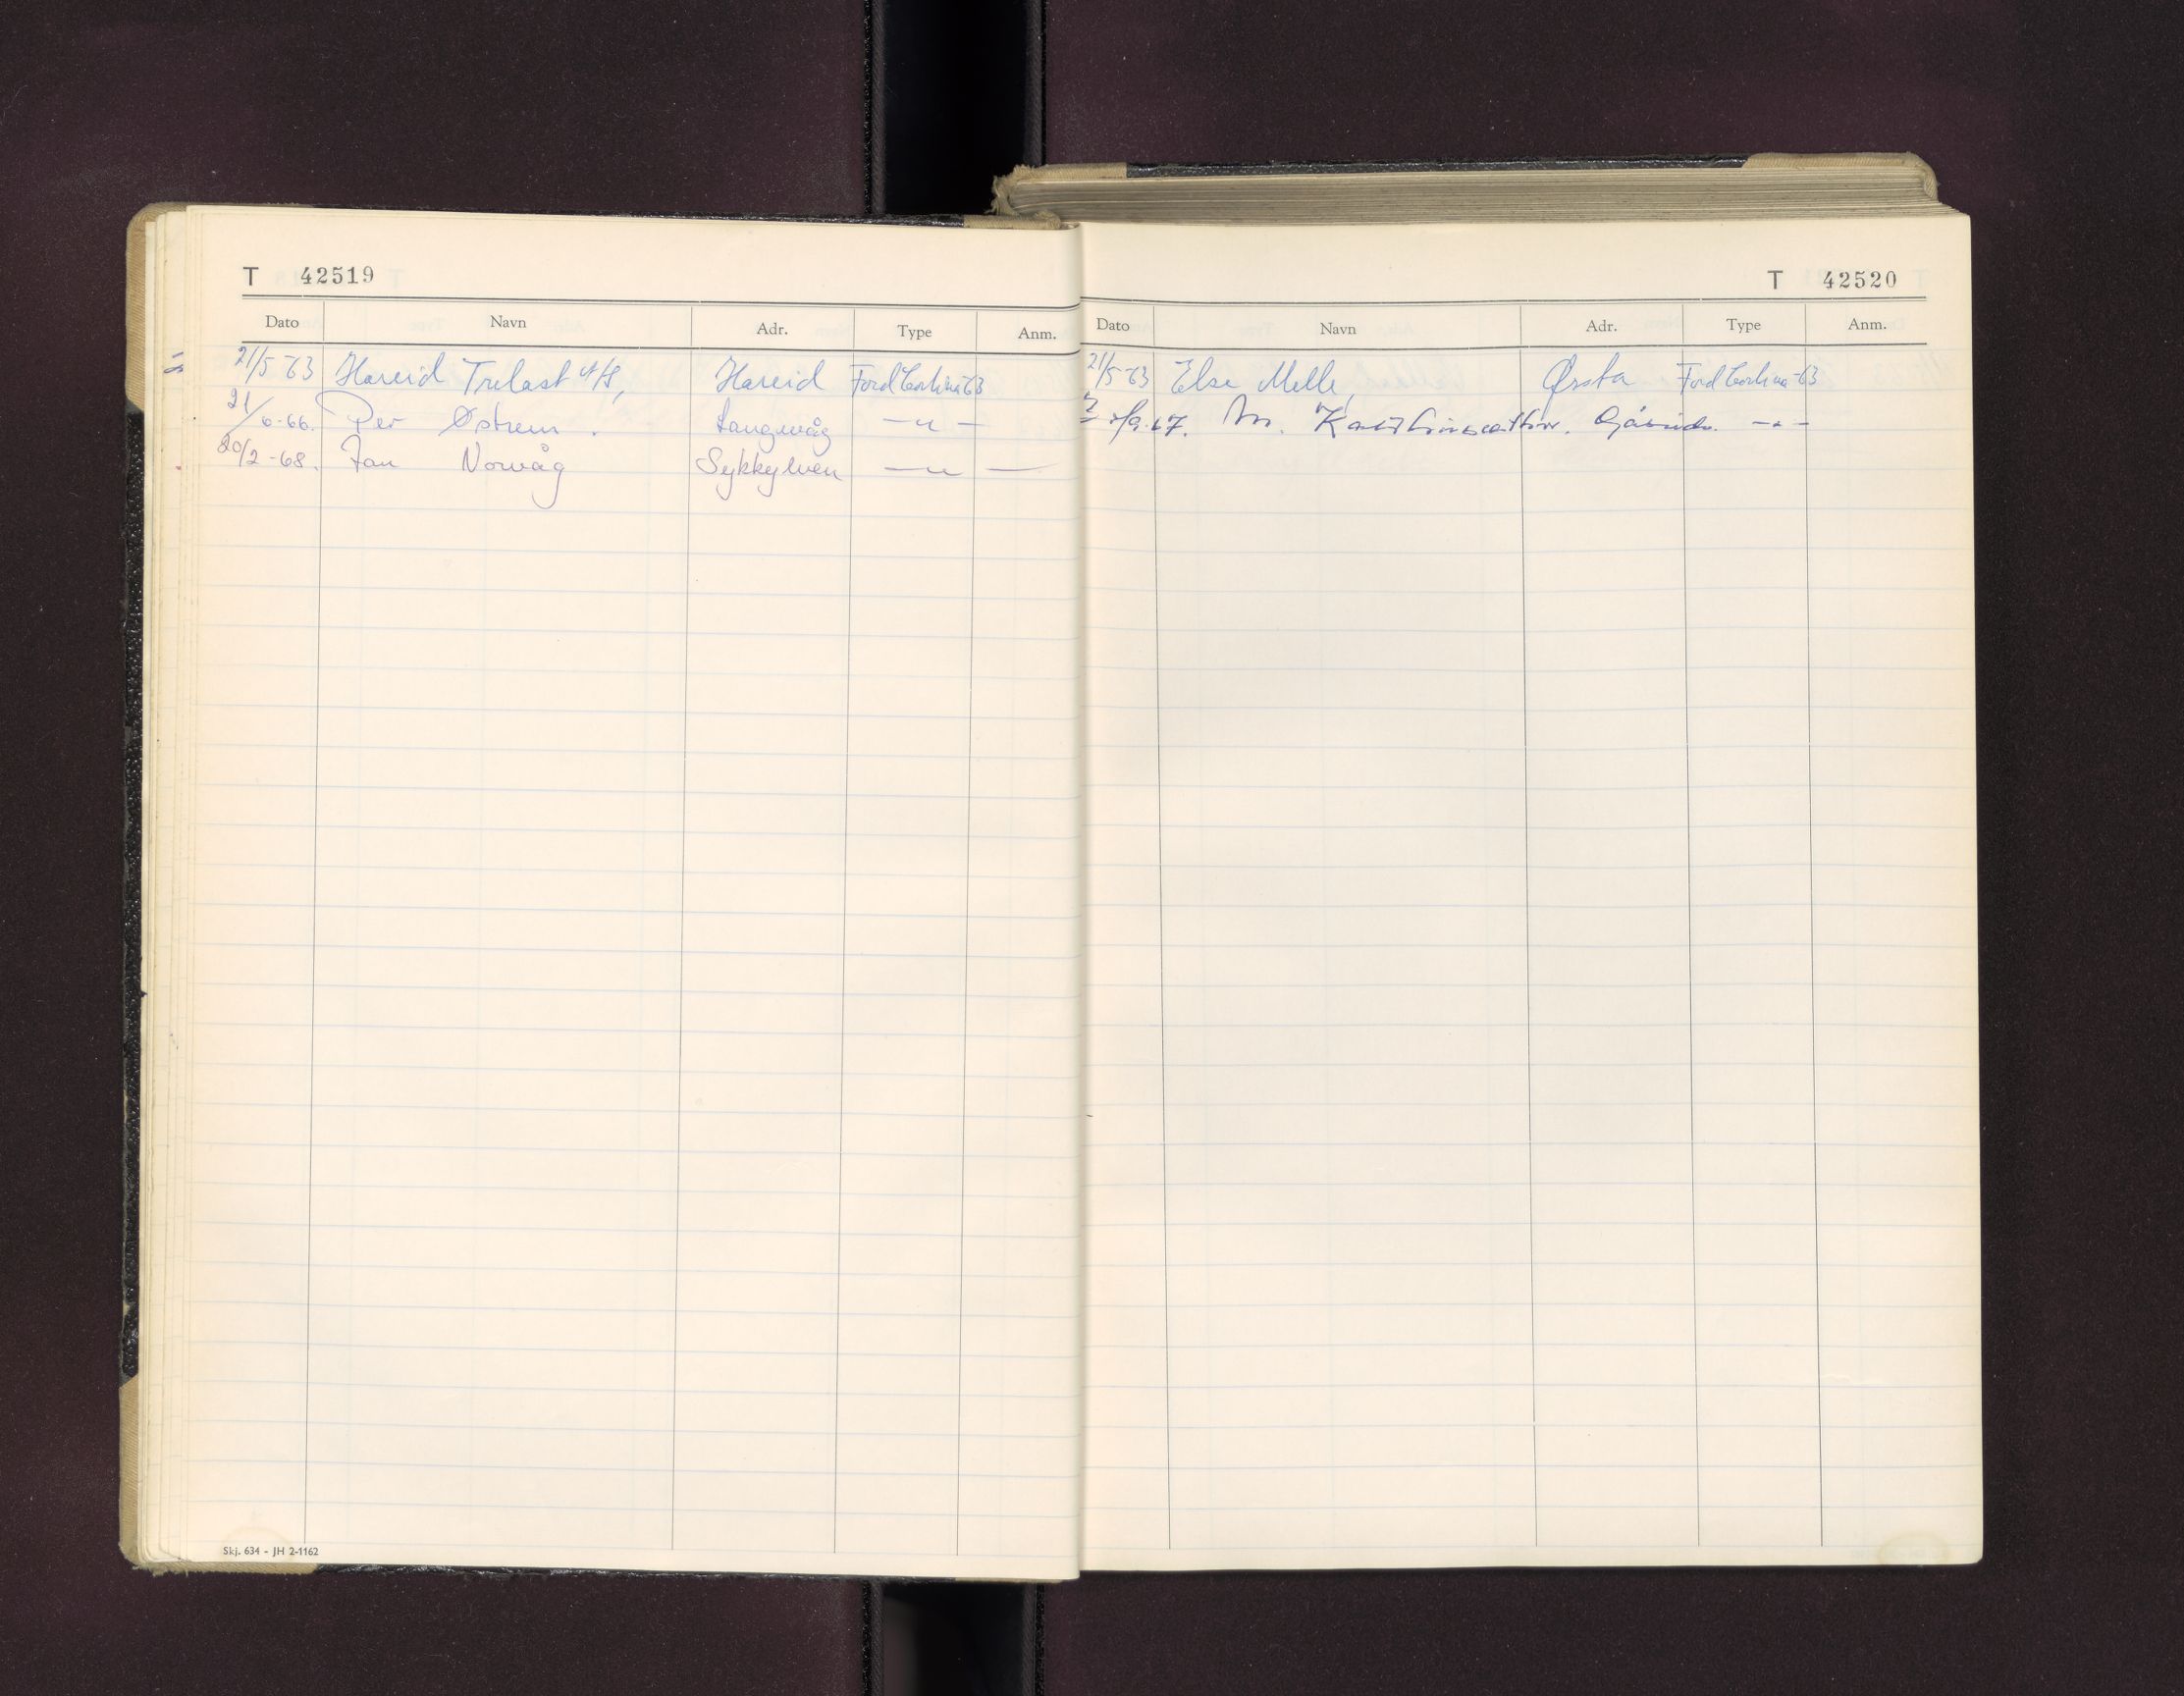 T 42519
Dato Navn Adr. Type Anm.
21/5-63 Hareid Trelast A/S, Hareid Ford Cortina-63
21/6-66. Per Østrem. Langevåg —"—
20/2-68. Jan Norvåg Sykkylven —"—
Skj. 634 - JH 2-1162
T 42520
Dato Navn Adr. Type Anm.
21/5-63 Else Melle, Ørsta Ford Cortina-63
/9.67. —"—